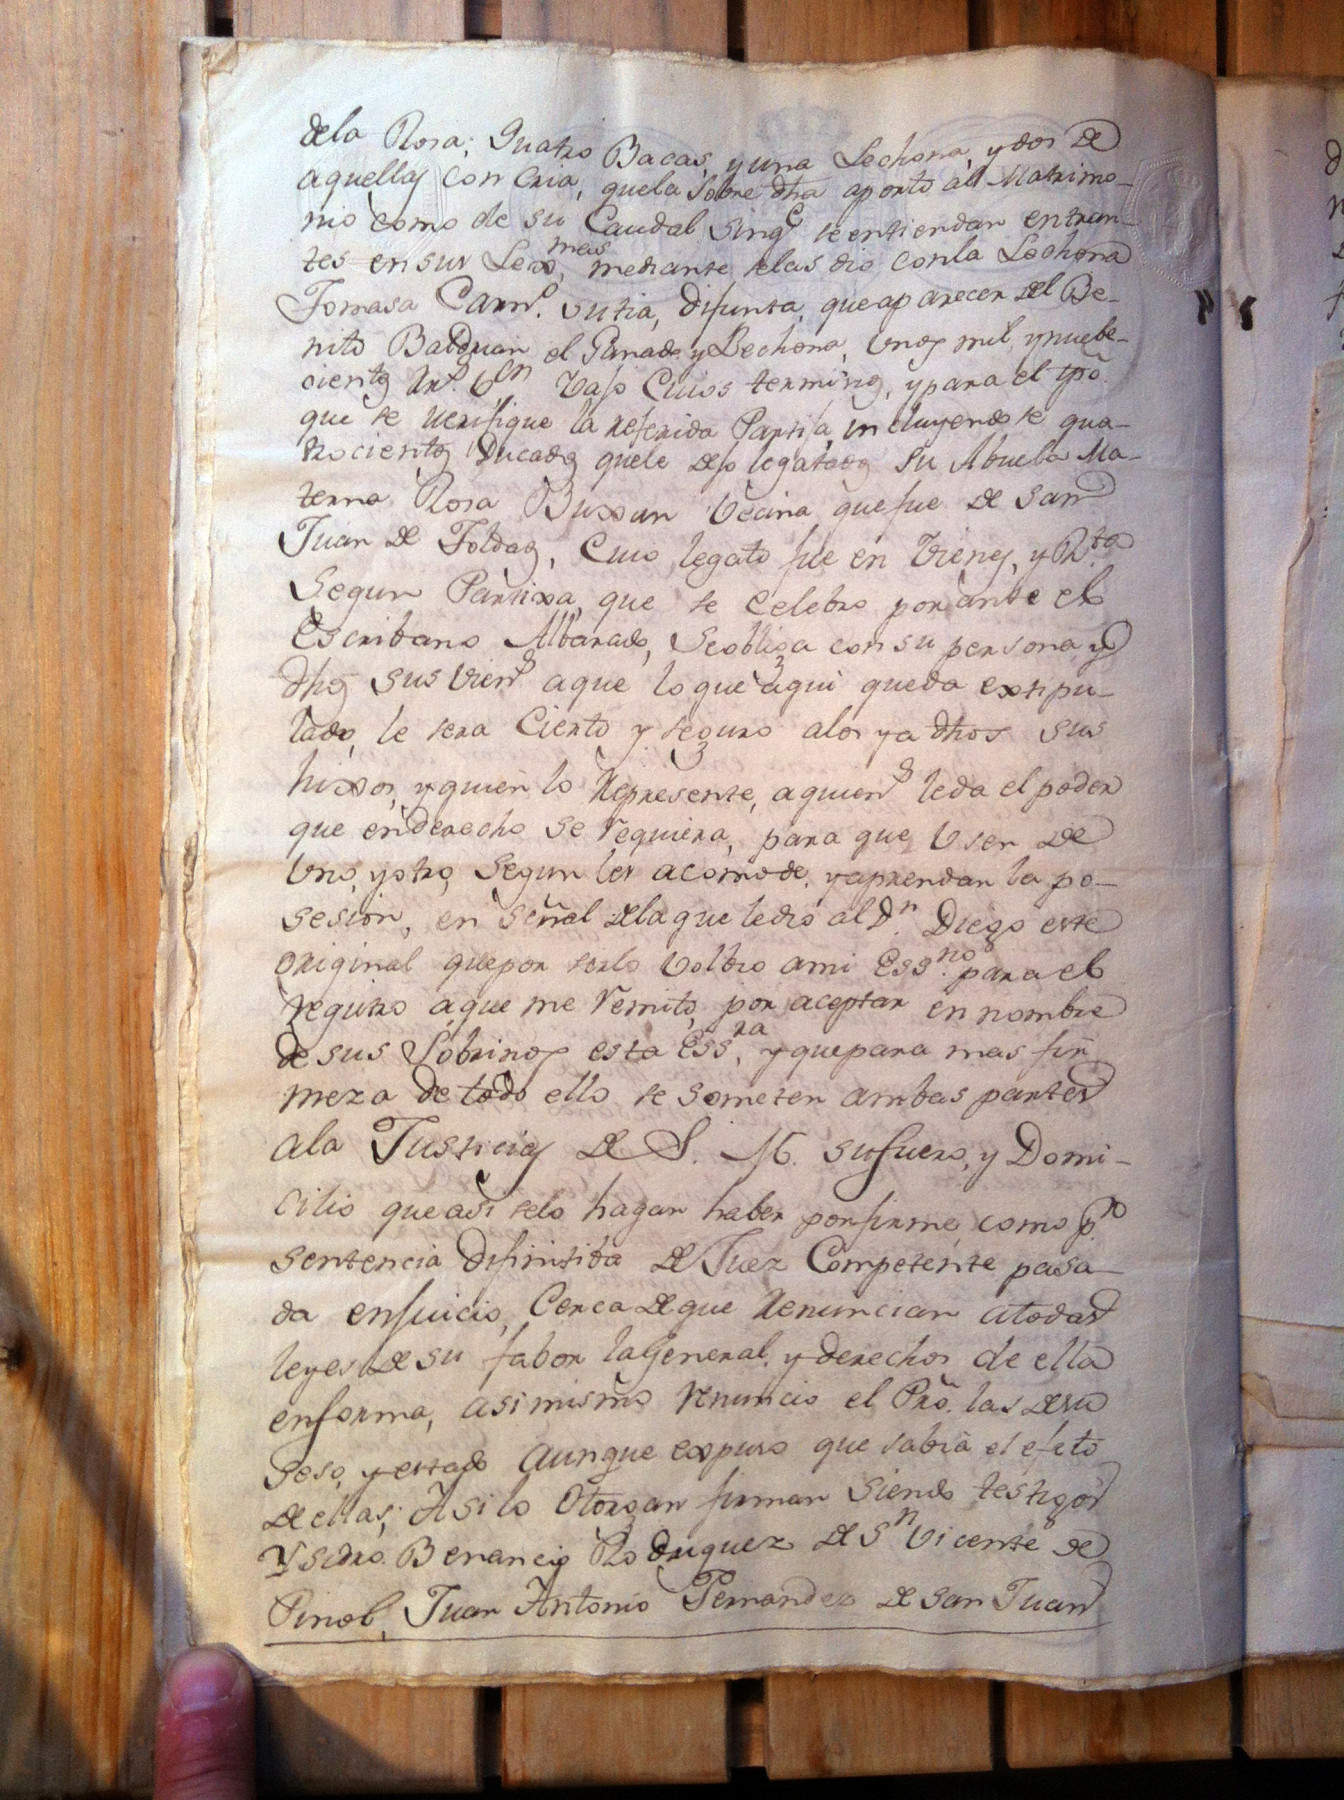 dela Rosa; Quatro Bacas, y una Lechona, y dos de
aquellas con Cria, quela Sobre dha aporto al Matrimo-
nio como de su Caudal sin qe se entiendan entran-
tes en sus Lexmas, mediante selas dio conla Lechona
Tomasa Carnro. su tia, difunta, que aparecer del Be-
nito Balduan el Ganado y Lechona, Unos mil y nuebe-
cientos Rs. Vn Vajo Cuios terminos, y para el tpo.
que se verifique la referida Partija, incluyendose qua-
trocientos Ducados quele dejo legatados su Abuela Ma-
terna Rosa Buxan Vecina que fue de San
Juan de Toldas, Cuio legato fue en Vienes, y Rta
Segun Partixa, que se Celebro por ante el
Escribano Albarado, Seobliga con su persona y
dhos sus Viens a que lo que aqui queda extipu-
lado, le sera Cierto y seguro alos ya dhos sus
hixos, y quien lo Represente, a quiens leda el poder
que enderecho se requiera, para que Usen de
Uno, y otro, Segun les acomode, y aprendan la po-
sesion, en señal delaque ledio al Dn. Diego este
original quepor serlo Volbio ami Essno. para el
registro aque me remito, por aceptar en nombre
de sus Sobrinos esta Essra, y quepara mas fir-
meza de todo ello se someten ambas partes
ala Justicias de S. M. sufuero, y Domi-
cilio queasi selo hagan haber porfirme, como pr.
sentencia difinitiba de Juez Competente pasa-
da enjuicio, Cerca deque Renuncian atodas
leyes de su fabor lageneral, y derechos de ella
enforma, asimismo renuncio el Pro. las desu
Seso, y estado aunque expuso que sabia el efeto
de ellas; Asilo Otorgan firman Siendo testigos
Ysidro Benancio Rodriguez de Sn Vicente de
Pinol, Juan Antonio Fernandez de San Juan